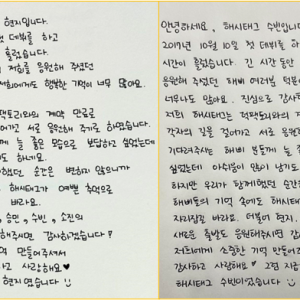 현지입니다.
데뷔를 하고
흘렀습니다.
저희를 응원해 주셨던
저희에게도 행복한 기억이 너무 많아요.
계약 만료로
서로 응원해 주기로 하였습니다.
늘 좋은 모습으로 보답하고 싶었는데
도 하네요.
했던 순간은 변하지 않으니까
해시태그가 예쁜 추억으로
바라요.
, 승민, 수빈, 소진의
해주시면 감사하겠습니다!
만들어주셔서
하고 사랑해요♥
현지였습니다
안녕하세요, 해시태그 수빈입니다.
2019년 10월 10일 첫 데뷔를 하
시간이 흘렀습니다. 긴 시간 동안
응원해 주셨던 해비 여러분 덕분에
너무나도 많아요. 진심으로 감사
저희 해시태그는 럭팩토리와의 계
각자의 길을 걸어가고 서로 응원
기다려주시는 해비들께 늘 좋
싶었는데 아쉬움이 많이 남기도
하지만 우리가 함께했던 순간
해비들의 기억 속에도 해시태
자리잡길 바라요. 더불어 현지,
새로운 출발도 응원해주시면 감
저희에게 소중한 기억 만들어
감사하고 사랑해요♥ 그럼 지금
해시태그 수빈이었습니다